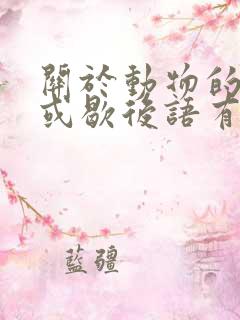 關於動物的
或歇後語有
藍疆